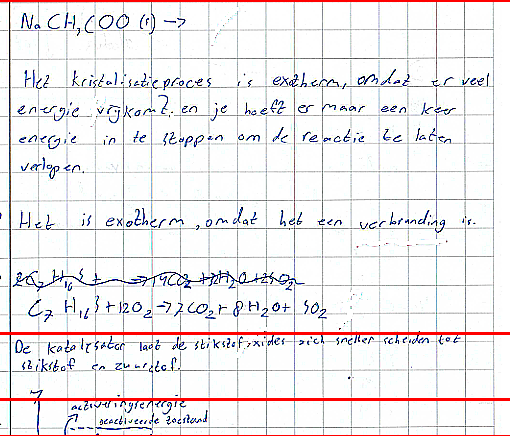 NaCH₃COO (s) →
Het kristalisatieproces is exotherm, omdat er veel
energie vrijkomt. en je hoeft er maar een keer
energie in te stoppen om de reactie te laten
verlopen.
Het is exotherm, omdat het een verbranding is.
C₇H₁₆S + 12O₂ → 7CO₂ + 8H₂O + SO₂
De katalysator laat de stikstofoxides zich sneller scheiden tot
stikstof en zuurstof.
activeringsenergie
geactiveerde toestand